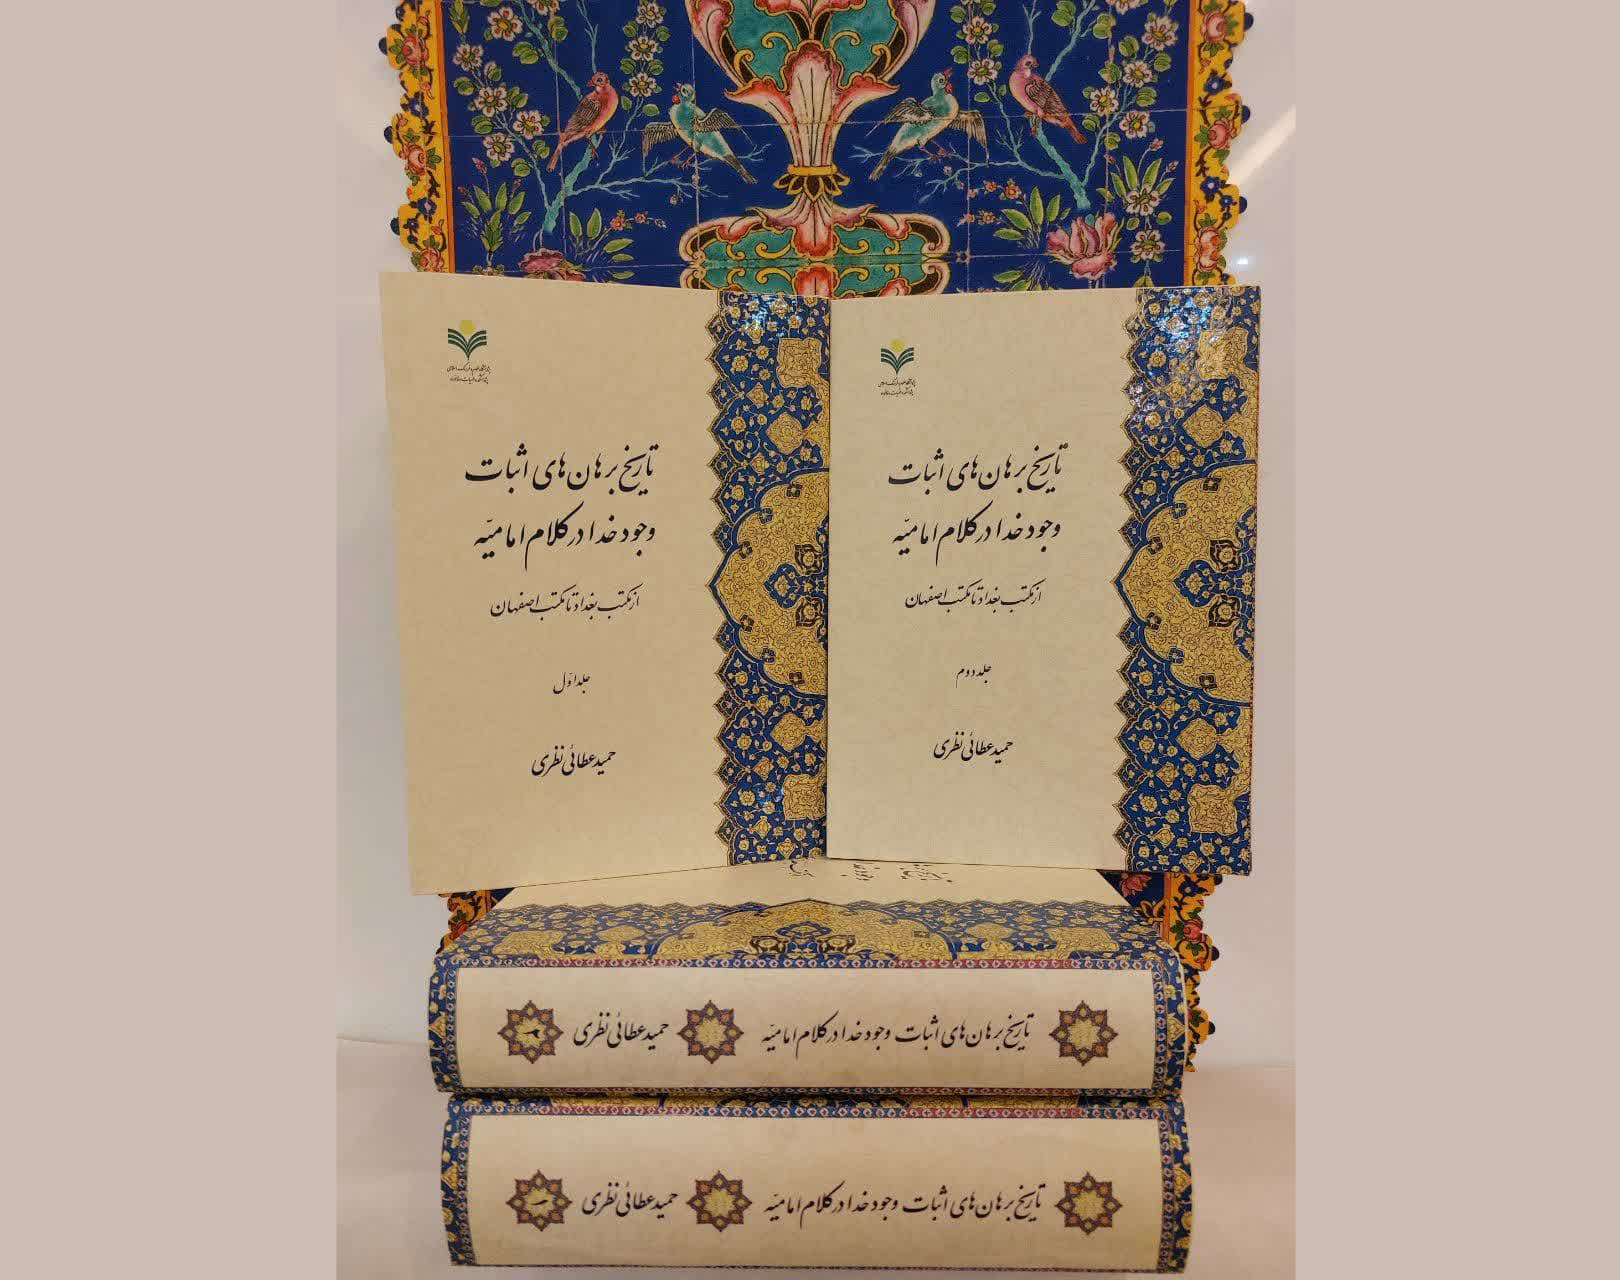 پژوهشگاه علوم و فرهنگ اسلامی
تاریخ برهان‌های اثبات
وجود خدا در کلام امامیّه
از مکتب بغداد تا مکتب اصفهان
جلد دوم
حمید عطائی نظری
پژوهشگاه علوم و فرهنگ اسلامی
تاریخ برهان‌های اثبات
وجود خدا در کلام امامیّه
از مکتب بغداد تا مکتب اصفهان
جلد اوّل
حمید عطائی نظری
تاریخ برهان‌های اثبات وجود خدا در کلام امامیّه حمید عطائی نظری
تاریخ برهان‌های اثبات وجود خدا در کلام امامیّه حمید عطائی نظری